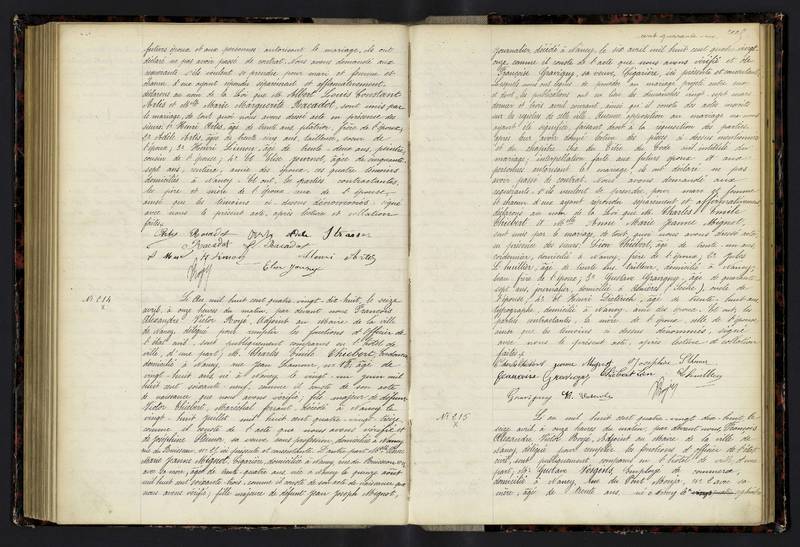 futurs époux et aux personnes autorisant le mariage, ils ont
déclaré ne pas avoir passé de contrat. Nous avons demandé aux
requérants s'ils veulent se prendre pour mari et femme et
chacun d'eux ayant répondu séparément et affirmativement,
déclarons au nom de la Loi que M. Albert Louis Constant
Artis et Mlle Marie Marguerite Bacadot, sont unis par
le mariage, de tout quoi nous avons dressé acte en présence des
sieurs: 1° Henri Artis, âgé de trente ans, plâtrier, frère de l'époux;
2° Adèle Artis, âgée de trente cinq ans, tailleuse, soeur de
l'époux; 3° Henri Simon, âgé de trente-deux ans, peintre,
cousin de l'époux; 4° et Elise Journot, âgée de cinquante
sept ans, rentière, amie des époux; ces quatre témoins
domiciliés à Nancy. Et ont, les parties contractantes,
les père et mère de l'époux
ainsi que les témoins ci-dessus dénommés, signé
avec nous le présent acte, après lecture et collation
faites.
Artis Bacadot Artis Adèle
Bacadot Bacadot
H Simon Henri Artis
Elise Journot
N° 214
L'an mil huit cent quatre-vingt-dix-huit, le seize
avril, à onze heures du matin, par devant nous François
Alexandre Victor Boyé, Adjoint au Maire de la ville
de Nancy, délégué pour remplir les fonctions d'Officier de
l'Etat civil, sont publiquement comparus en l'hôtel de
ville, d'une part; M. Charles Emile Thiébert, cordonnier,
domicilié à Nancy, rue Jean Lamour, n° 18, âgé de
vingt-huit ans, né à Nancy le vingt-un juin mil
huit cent soixante-neuf, comme il conste de son acte
de naissance que nous avons vérifié; fils majeur de défunt
Victor Thiébert, Maréchal ferrant, décédé à Nancy le
vingt-huit juillet mil huit cent quatre-vingt-treize,
comme il conste de l'acte que nous avons vérifié et
de Joséphine sa veuve, sans profession, domiciliée à Nancy,
présente et consentante. D'autre part Mlle Anne
Marie Jeanne Mignot, Cigarière, domiciliée à Nancy
avec sa mère, âgée de trente-quatre ans, née à Nancy le quinze août
mil huit cent soixante-trois, comme il conste de son acte de naissance que
nous avons vérifié; fille majeure de défunt Jean Joseph Mignot,
cent quarante-un
journalier, décédé à Nancy, le six avril mil huit cent quatre-vingt
onze, comme il conste de l'acte que nous avons vérifié et de
Françoise Gravigny, sa veuve, Cigarière, ici présente et consentante.
Lesquels nous ont requis de procéder au mariage projeté entre eux
et dont les publications ont eu lieu les dimanches vingt-sept mars
dernier et trois avril courant, ainsi qu'il conste des actes inscrits
sur les registres de cette ville. Aucune opposition au mariage ne nous
ayant été signifiée, faisant droit à la réquisition des parties,
après leur avoir donné lecture des pièces ci-dessus mentionnées
et du chapitre six du Titre du Code civil, intitulé du
mariage; interpellation faite aux futurs époux et aux
personnes autorisant le mariage, ils ont déclaré ne pas
avoir passé de contrat. Nous avons demandé aux
requérants s'ils veulent se prendre pour mari et femme
et chacun d'eux ayant répondu séparément et affirmativement,
déclarons au nom de la Loi que M. Charles Emile
Thiébert et Mlle Anne Marie Jeanne Mignot,
sont unis par le mariage, de tout quoi nous avons dressé acte
en présence des sieurs: 1° Léon Thiébert, âgé de trente-un ans,
cordonnier, domicilié à Nancy, frère de l'époux; 2° Jules
Lhuillier, âgé de trente ans, domicilié à Nancy,
beau-frère de l'époux; 3° Gustave Gravigny, âgé de quarante-
sept ans, journalier, domicilié à Asnières (Seine), oncle de
l'épouse; 4° et Henri Dietrich, âgé de trente-huit ans,
typographe, domicilié à Nancy, ami des époux. Et ont, les
parties contractantes, la mère de l'époux, celle de l'épouse
ainsi que les témoins ci-dessus dénommés, signé
avec nous le présent acte, après lecture et collation
faites.
Charles Thiébert Jeanne Mignot Joséphine
Françoise Gravigny Thiébert Léon Lhuillier
Gravigny H.
N° 215
L'an mil huit cent quatre-vingt-dix-huit, le
seize avril, à onze heures du matin, par devant nous François
Alexandre Victor Boyé, Adjoint au Maire de la ville de
Nancy, délégué pour remplir les fonctions d'officier de l'état
civil, sont publiquement comparus en l'hôtel de ville, d'une
part, M. Gustave Vosgeois, Employé de commerce,
domicilié à Nancy, rue du Pont Mouja, n° 2 avec sa
mère, âgé de trente ans, né à Nancy le